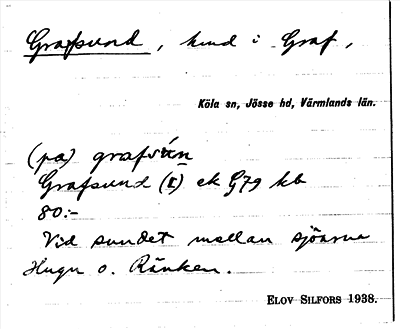 Grafsund, hmd i Graf,
Köla sn, Jösse hd, Värmlands län.
(på) grafsún
Grafsund (I) ek G79 kb
80:-
Vid sundet mellan sjöarna
Hugn o. Ränken.
ELOV SILFORS 1938.